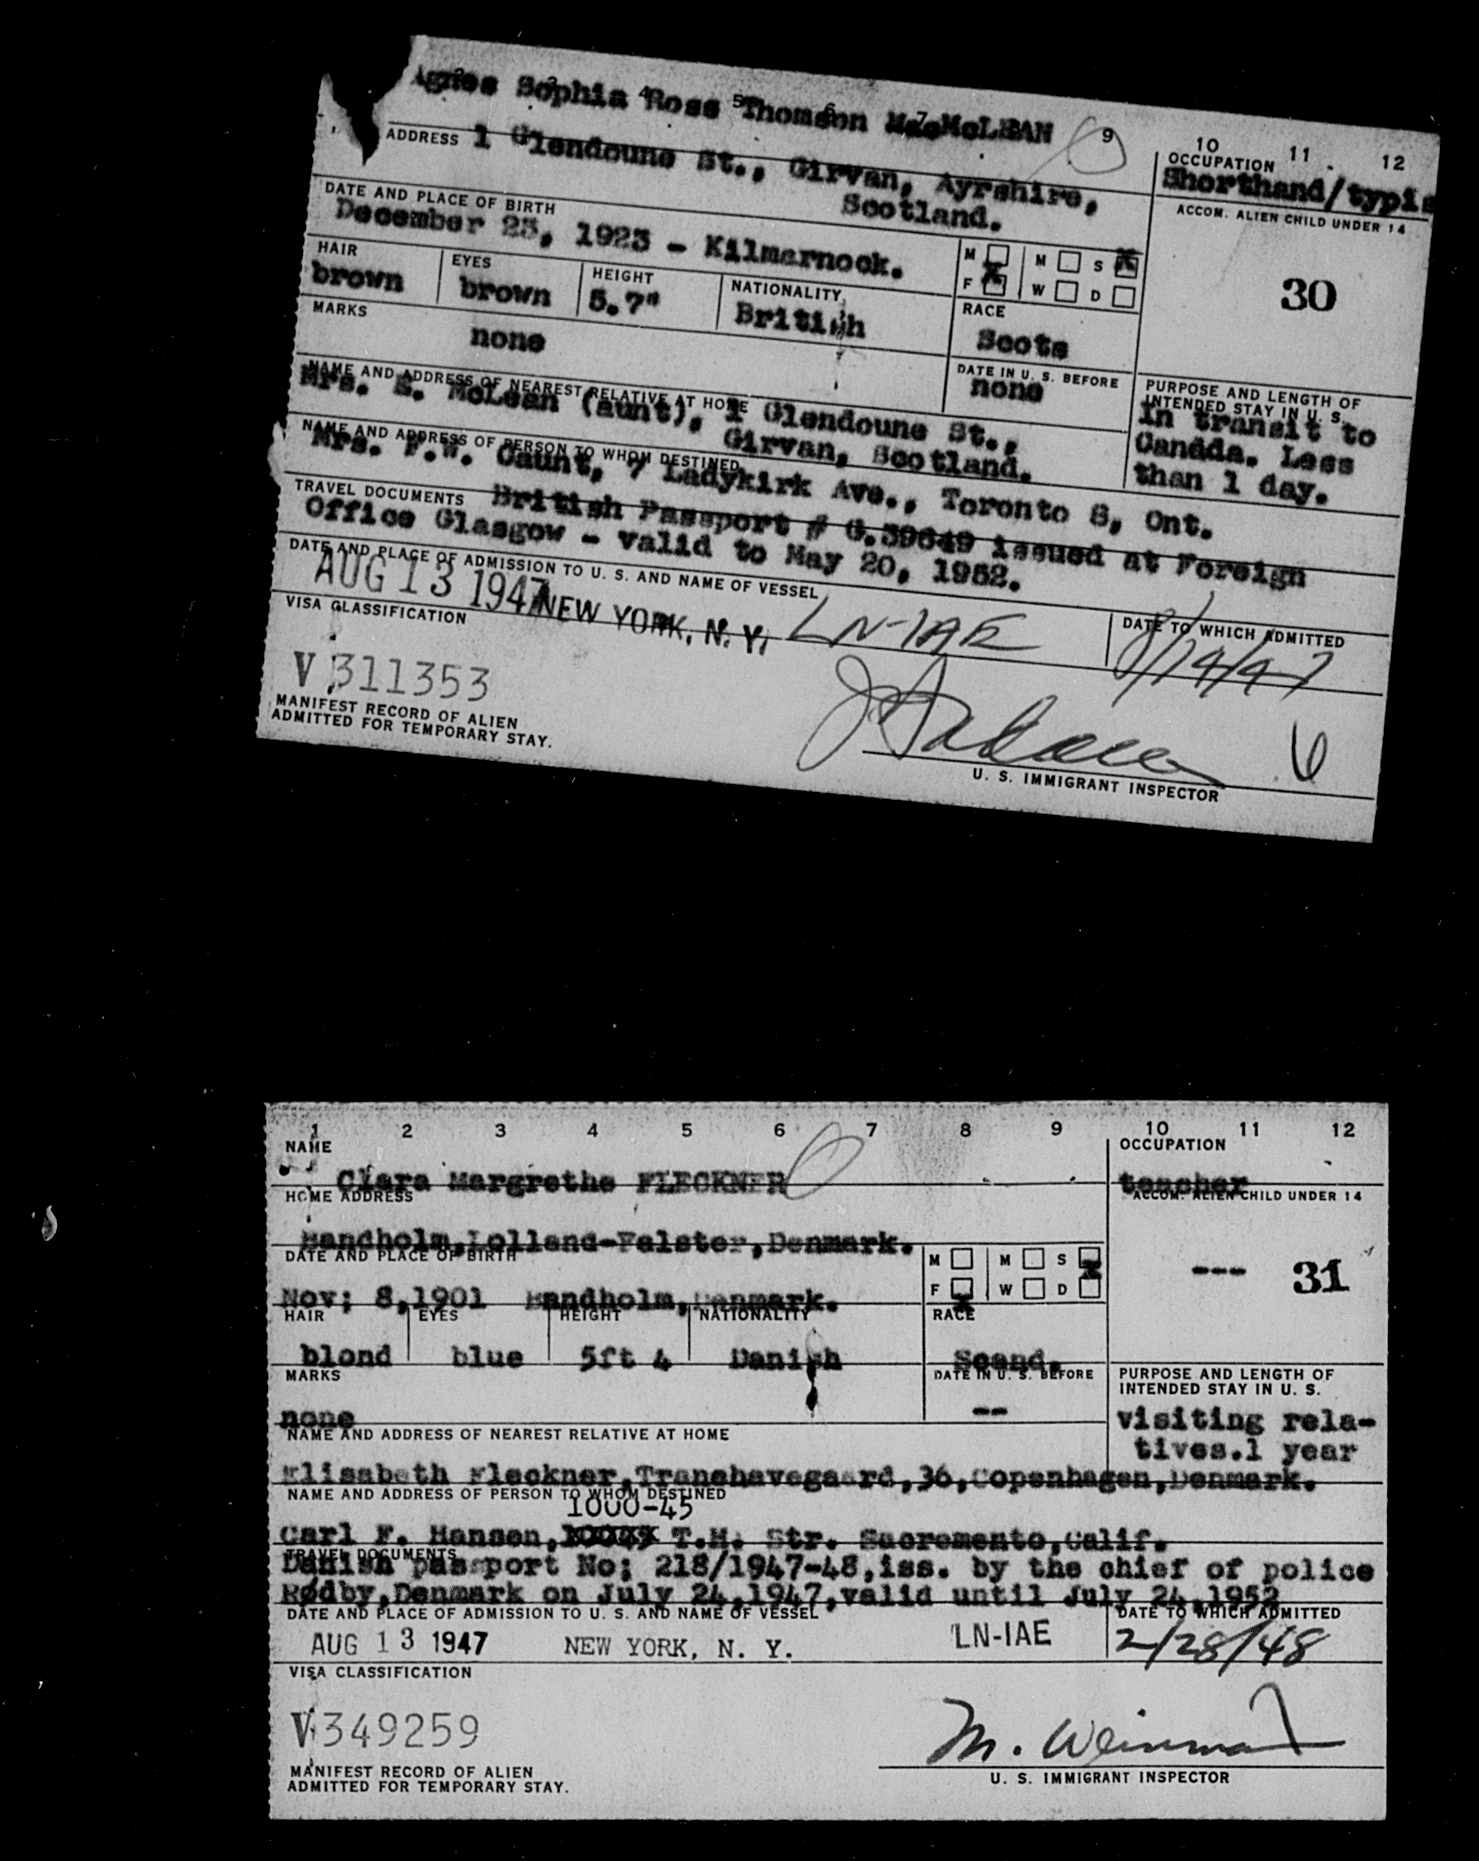 Agnes Sophia Ross Thomson MacMcLEAN
2 3 4 5 6 7 9 10 11 12
ADDRESS 1 Glendoune St., Girvan, Ayrshire,
Scotland.
OCCUPATION
Shorthand/typis
ACCOM. ALIEN CHILD UNDER 14
30
DATE AND PLACE OF BIRTH
December 23, 1923 - Kilmarnock.
M M S X
F X W D
HAIR EYES HEIGHT NATIONALITY RACE
brown brown 5.7" British Scots
MARKS
none
DATE IN U. S. BEFORE
none
NAME AND ADDRESS OF NEAREST RELATIVE AT HOME
Mrs. E. McLean (aunt), 1 Glendoune St.,
Girvan, Scotland.
PURPOSE AND LENGTH OF
INTENDED STAY IN U. S.
in transit to
Candda. Less
than 1 day.
NAME AND ADDRESS OF PERSON TO WHOM DESTINED
Mrs. F.W. Caunt, 7 Ladykirk Ave., Toronto 8, Ont.
TRAVEL DOCUMENTS British Passport # G.39649 issued at Foreign
Office Glasgow - valid to May 20, 1952.
DATE AND PLACE OF ADMISSION TO U. S. AND NAME OF VESSEL
AUG 13 1947 NEW YORK, N. Y. LN-IAE
DATE TO WHICH ADMITTED
8/14/47
VISA CLASSIFICATION
V 311353
MANIFEST RECORD OF ALIEN
ADMITTED FOR TEMPORARY STAY.
6
U. S. IMMIGRANT INSPECTOR
1 2 3 4 5 6 7 8 9 10 11 12
NAME OCCUPATION
Clara Margrethe FLECKNER teacher
HOME ADDRESS ACCOM. ALIEN CHILD UNDER 14
Bandholm,Lolland-Falster,Denmark.
DATE AND PLACE OF BIRTH
M M S X
--- 31
F X W D
Nov; 8,1901 Bandholm,Denmark.
HAIR EYES HEIGHT NATIONALITY RACE
blond blue 5ft 4 Danish Scand.
MARKS DATE IN U. S. BEFORE
PURPOSE AND LENGTH OF
INTENDED STAY IN U. S.
none --
visiting rela-
tives.1 year
NAME AND ADDRESS OF NEAREST RELATIVE AT HOME
Elisabeth Fleckner,Tranehavegaard,36,Copenhagen,Denmark.
NAME AND ADDRESS OF PERSON TO WHOM DESTINED
1000-45
Carl F. Hansen, T.H. Str. Sacremento,Calif.
TRAVEL DOCUMENTS
Danish passport No; 218/1947-48,iss. by the chief of police
Rødby,Denmark on July 24,1947,valid until July 24,1952
DATE AND PLACE OF ADMISSION TO U. S. AND NAME OF VESSEL DATE TO WHICH ADMITTED
AUG 13 1947 NEW YORK, N. Y. LN-IAE 2/28/48
VISA CLASSIFICATION
V 349259
M. Weinman
MANIFEST RECORD OF ALIEN
ADMITTED FOR TEMPORARY STAY.
U. S. IMMIGRANT INSPECTOR